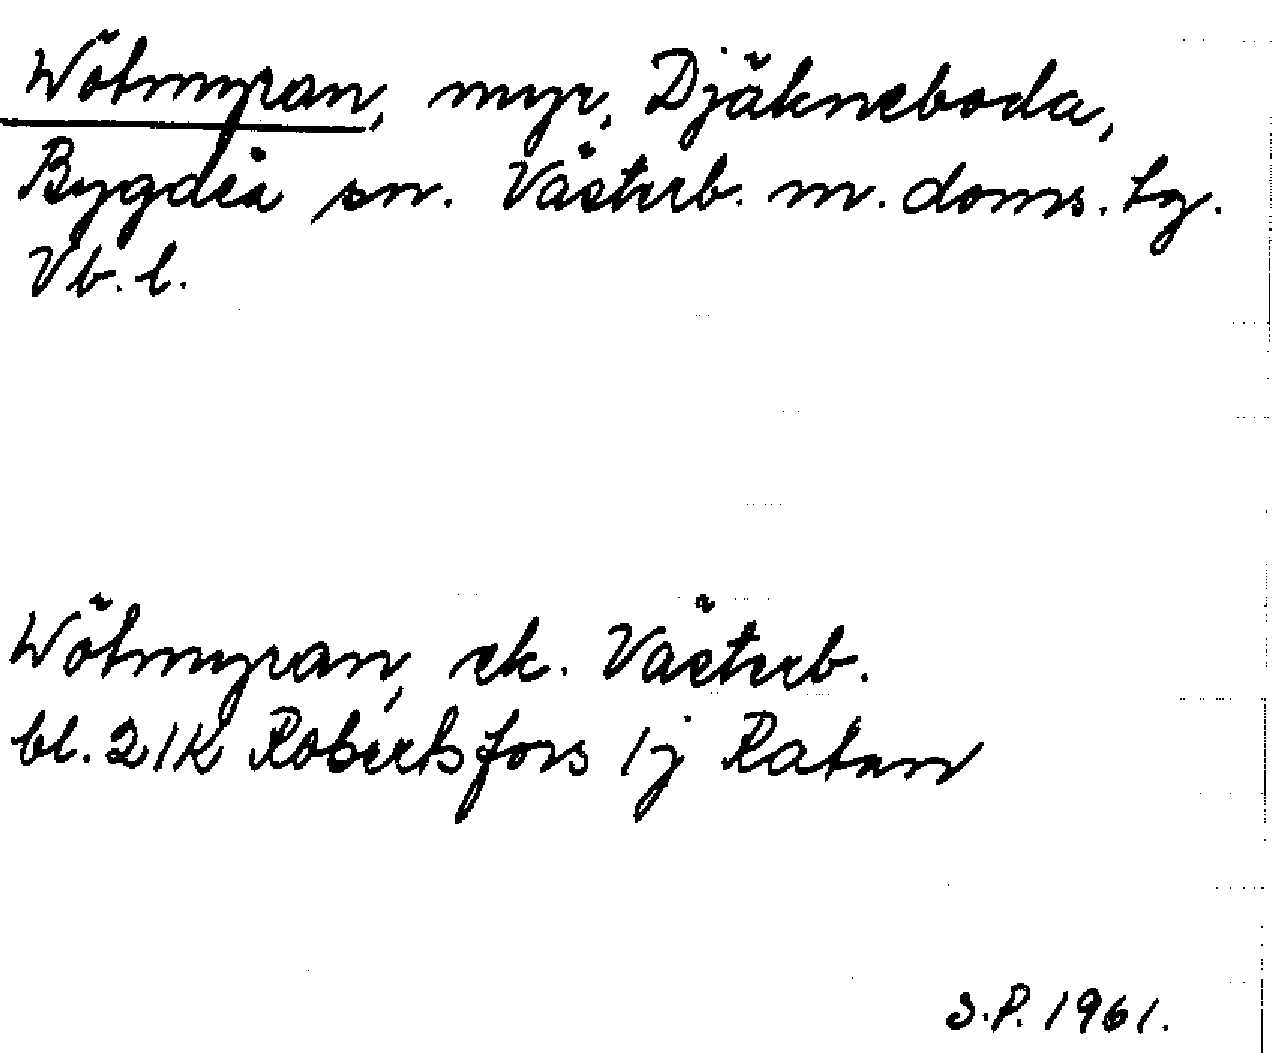 Wötmyran, myr, Djäkneboda,
Bygdeå sn. Västerb. m. doms. tg.
Vb. l.
Wötmyran, ek. Västerb.
bl. 21K Robertsfors 1j Ratan
S.P. 1961.